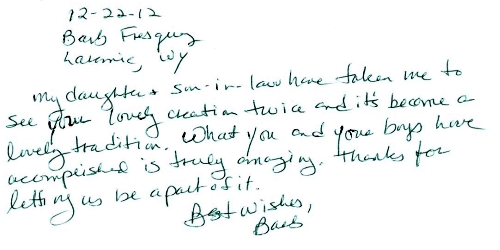 12-22-12
Barb Fresquez
Laramie, WY
My daughter & son-in-law have taken me to
see your lovely creation twice and it's become a
lovely tradition. What you and your boys have
accomplished is truly amazing. Thanks for
letting us be a part of it.
Best wishes,
Barb